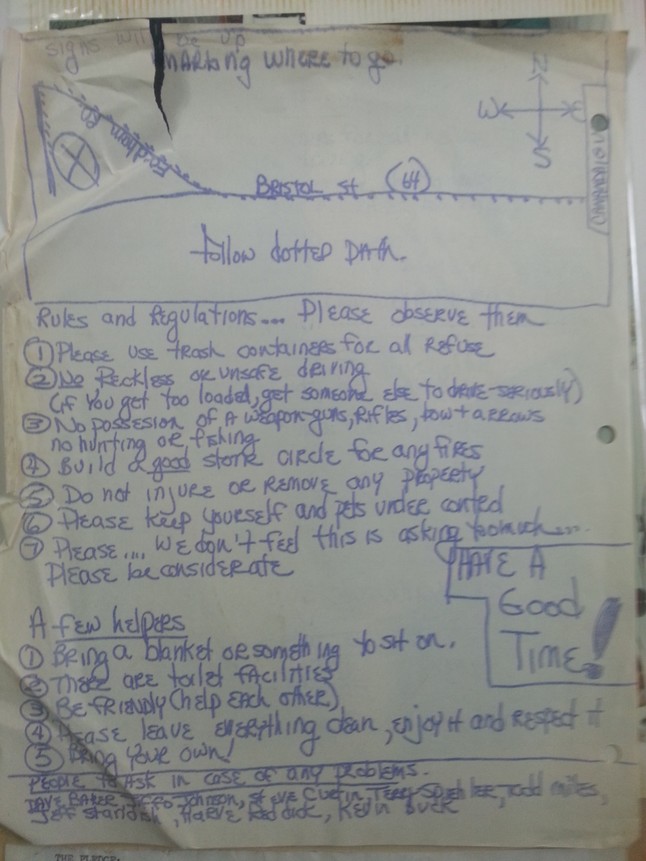 signs will be up
marking where to go.
N
W E
S
Bristol St (64)
follow dotted path.
Rules and Regulations... Please observe them
① Please use trash containers for all refuse
② No Reckless or unsafe driving
(if you get too loaded, get someone else to drive-seriously)
③ No possesion of A weapon-guns, Rifles, bow + arrows
no hunting or fishing
④ Build a good stone circle for any fires
⑤ Do not injure or remove any property
⑥ Please keep yourself and pets under control
⑦ Please.... We don't feel this is asking too much....
Please be considerate
HAVE A
Good
Time!
A few helpers
① Bring a blanket or something to sit on.
② There are toilet facilities
③ Be friendly (help each other)
④ Please leave everything clean, enjoy it and respect it
⑤ Bring your own!
People to Ask in case of any problems.
Dave Baker, Johnson, Steve Terry Todd Miles,
Jeff Harve Kevin
THE PLEDGE: